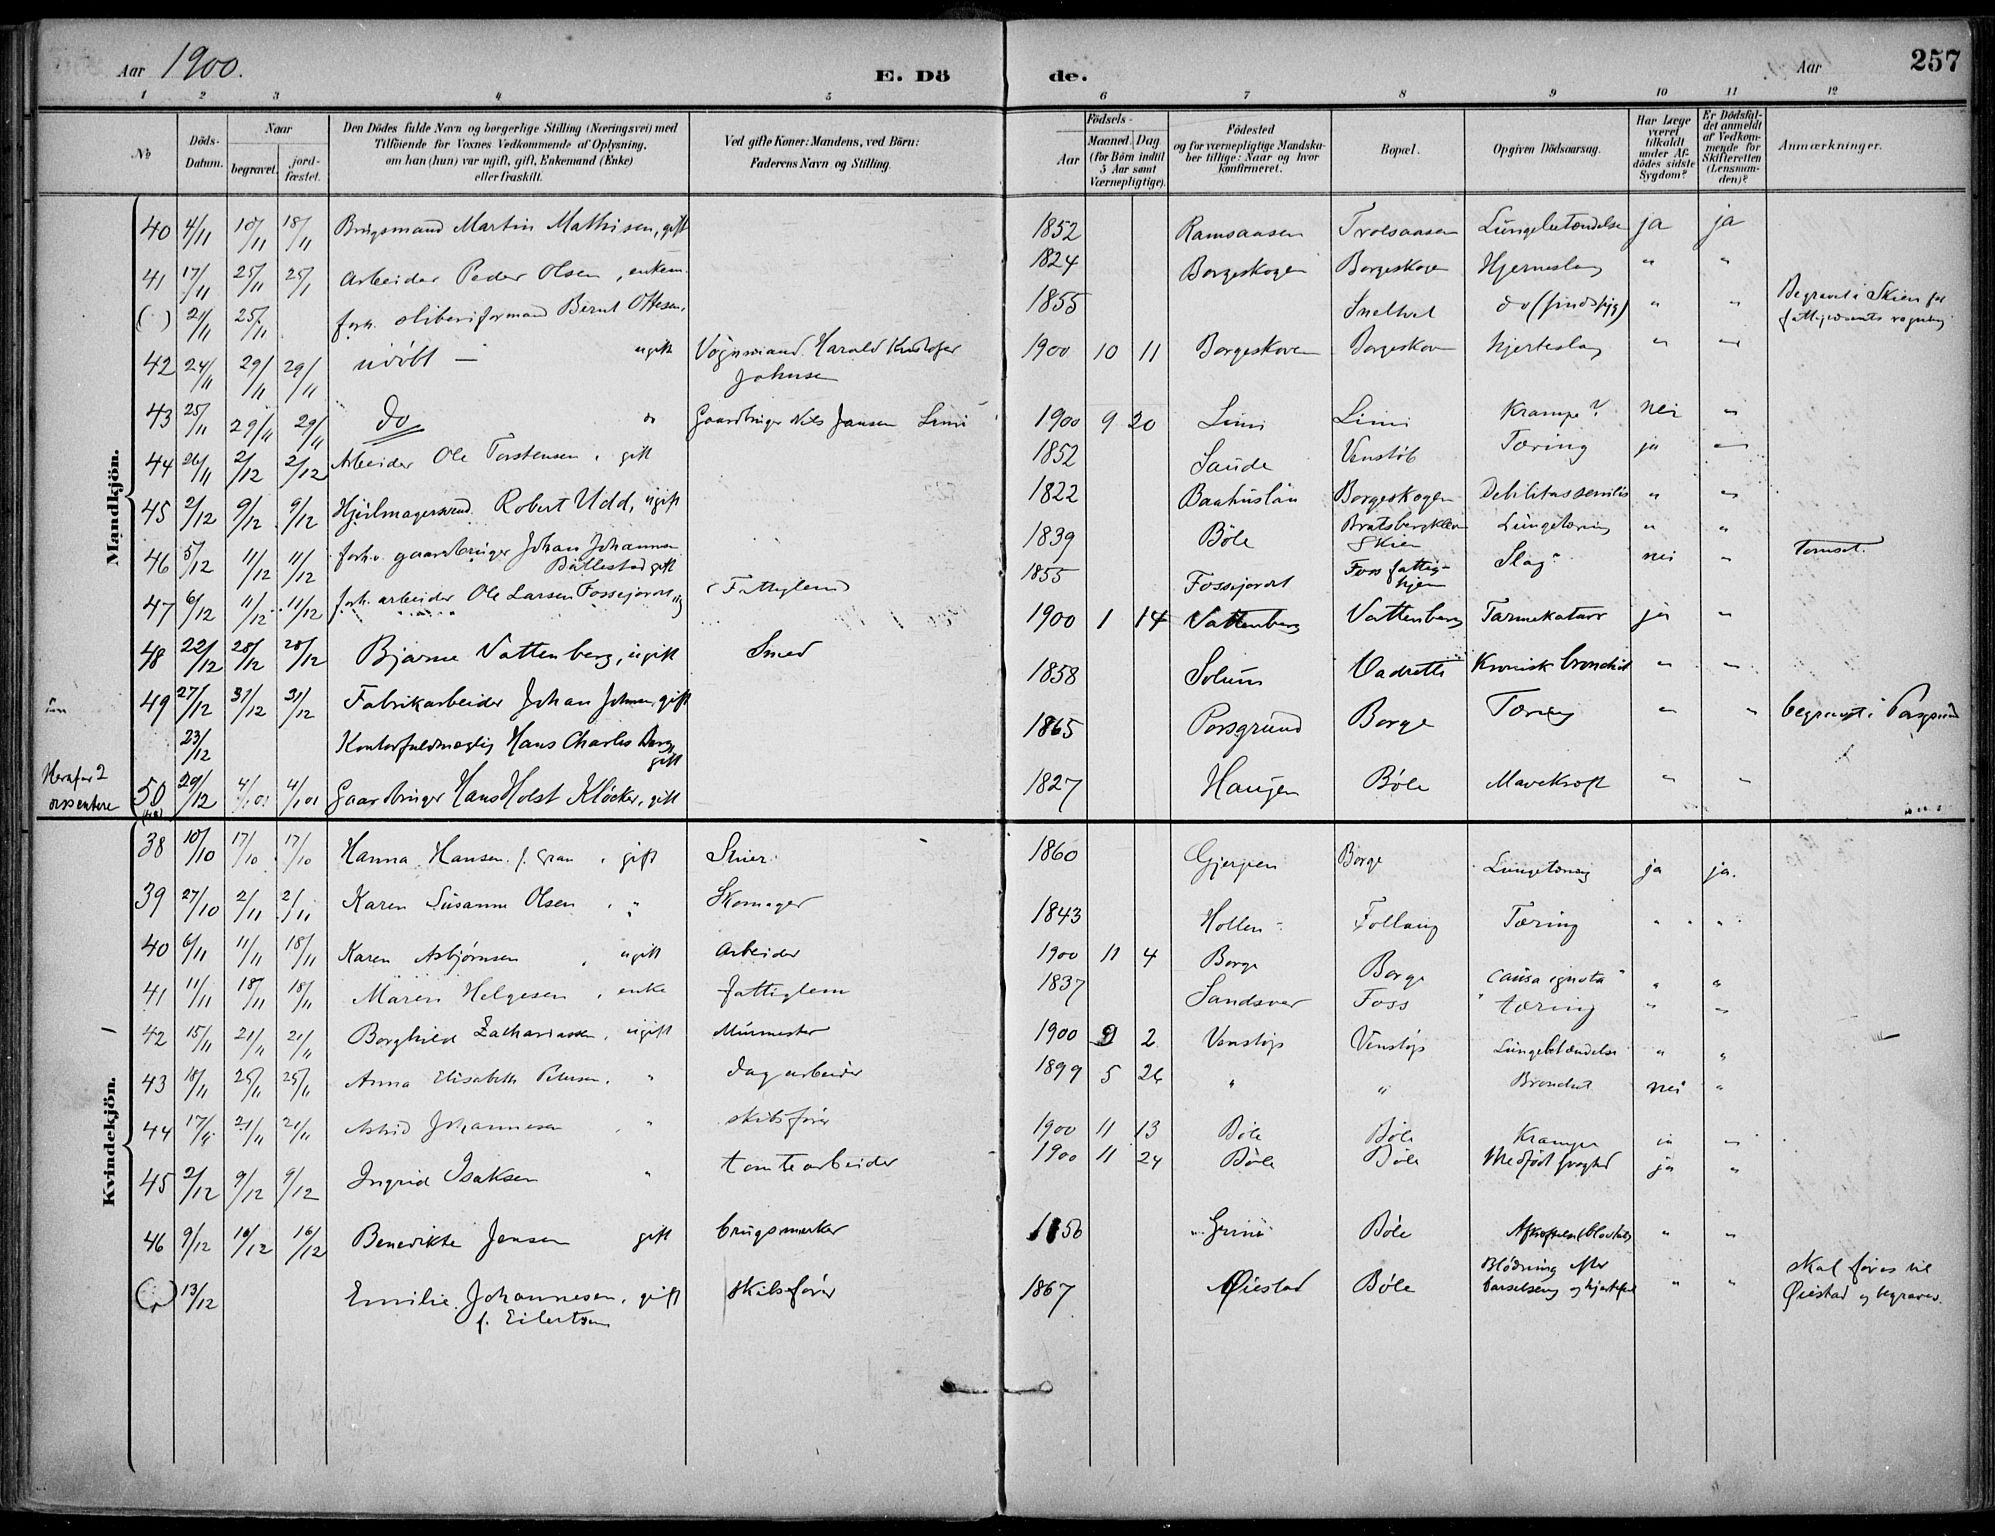 Aar 1900. E. Dö de. Aar 257
1 2 3 4 5 6 7 8 9 10 11 12
No
Döds-Datum.
Naar
begravet.
jord-fæstet.
Den Dödes fulde Navn og borgerlige Stilling (Næringsvei) med
Tilföiende for Voxnes Vedkommende af Oplysning,
om han (hun) var ugift, gift, Enkemand (Enke)
eller fraskilt.
Ved gifte Koner: Mandens, ved Börn:
Faderens Navn og Stilling.
Födsels-
Aar
Maaned Dag
(for Börn indtil
5 Aar samt
Værnepligtige).
Födested
og for værnepligtige Mandska-
ber tillige: Naar og hvor
konfirmeret.
Bopæl.
Opgiven Dödsaarsag.
Har Læge
været
tilkaldt
under Af-
dödes sidste
Sygdom?
Er Dödsfal-
det anmeldt
af Vedkom-
mende for
Skifteretten
(Lensman-
den)?
Anmærkninger.
Mandkjön.
40 4/11 10/11 18/11 Brugsmand Martin Mathisen, gift 1852 Ramsaasen Trolsaasen Lungebetændelse ja ja
41 17/11 25/11 25/1 Arbeider Peder Olsen, enkem. 1824 Borgeskogen Borgeskogen Hjerneslag " "
( ) 21/11 25/11 forh. sliberiformand Bernt Ottesen, ugift 1855 Sneltvet do (sindssyg) " " Begravet i Skien for
fattigvæsenets regning
42 24/11 29/11 29/11 udöbt — Vognmand Harald Kristofer
Johnsen 1900 10 11 Borgeskoven Borgeskoven hjerteslag " "
43 25/11 29/11 29/11 do Gaardbruger Nils Jansen Limi 1900 9 20 Limi Limi Krampe? nei "
44 26/11 2/12 2/12 Arbeider Ole Torstensen, gift 1852 Saude Venstöb Tæring ja "
45 2/12 9/12 9/12 Hjulmagersvend Robert Udd, ugift 1822 Baahuslän Borgeskogen Debilitas senilis " "
46 5/12 11/12 11/12 forhv. gaardbruger Johan Johannsen
Böllestad gift 1839 Böle Bratsbergkleven
Skien Lungetæring " " Tomset.
47 6/12 11/12 11/12 forh. arbeider Ole Larsen Fossejordet (Fattiglem) 1855 Fossejordet Foss fattig-
hjem Slag " nei "
48 22/12 28/12 28/12 Bjarne Vattenberg, ugift Smed 1900 1 14 Vattenberg Vattenberg Tarmekatarr ja "
49 27/12 31/12 31/12 Fabrikarbeider Johan Johnsen, gift 1858 Solum Vadrette Kronisk bronchit " "
23/12 Kontorfuldmægtig Hans Charles Berg
gift 1865 Porsgrund Borge Tæring " " begravet i Porsgrund
Herafor 2
dissentere
50 29/12 4/1 01 4/1 01 Gaardbruger Hans Holst Klöcker, gift 1827 Haugen Böle Mavekræft " "
Kvindekjön.
38 10/10 17/10 17/10 Hanna Hansen f. Gran, gift Smed 1860 Gjerpen Borge Lungetæring ja ja.
39 27/10 2/11 2/11 Karen Susanne Olsen, " Skomager 1843 Hollen Follaug Tæring " "
40 6/11 11/11 18/11 Karen Asbjørnsen, ugift Arbeider 1900 11 4 Borge Borge causa ignota " "
41 11/11 18/11 18/11 Maren Helgesen, enke fattiglem 1837 Sandsvær Foss tæring " "
42 15/11 21/11 21/11 Borghild Zachariassen, ugift Murmester 1900 9 2 Venstöp Venstöp Lungebetændelse " "
43 18/11 25/11 25/11 Anna Elisabeth Petersen, " dagarbeider 1899 5 26 " " Bronchit nei "
44 17/11 21/11 21/11 Astrid Johannesen " skibsfører 1900 11 13 Böle Böle Krampe "
45 2/12 9/12 9/12 Ingrid Isaksen " tomtearbeider 1900 11 24 Böle Böle Medfödt svaghed ja "
46 9/12 16/12 16/12 Benedikte Jensen gift brugsmerker 1856 Böle " "
( ) 13/12 Emilie Johannesen, gift
f. Eilertsen skibsfører 1867 Øiestad Böle Blödning efter
barselseng og hjertefeil " " skal føres til
Øiestad og begraves.